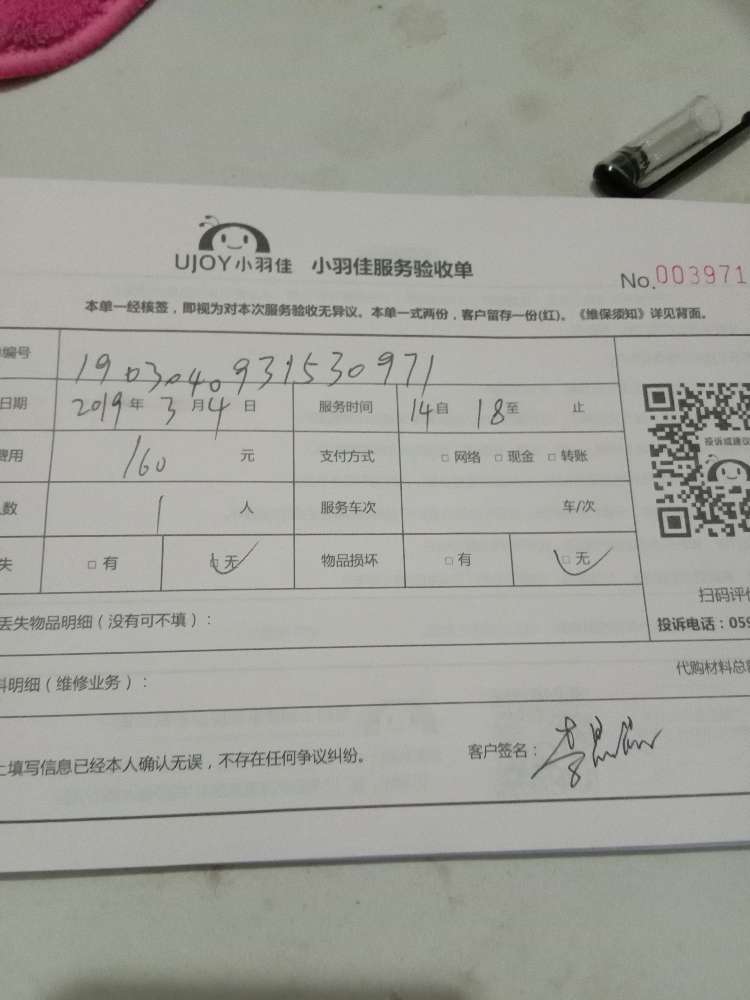 UJOY小羽佳 小羽佳服务验收单
No.003971
本单一经核签，即视为对本次服务验收无异议。本单一式两份，客户留存一份(红)。《维保须知》详见背面。
编号 1903040931530971
日期 2019年3月4日 服务时间 14自 18至 止
费用 160 元 支付方式 □网络 □现金 □转账
人数 1 人 服务车次 车/次
失 □有 □无 物品损坏 □有 □无
投诉或建议
扫码评价
投诉电话：059
丢失物品明细（没有可不填）：
料明细（维修业务）： 代购材料总
上填写信息已经本人确认无误，不存在任何争议纠纷。 客户签名：